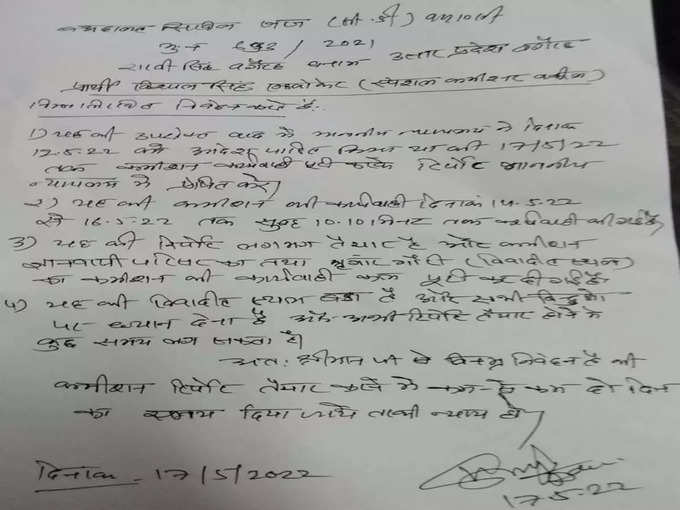 न्यायालय सिविल जज (सी.डी) वाराणसी
693 / 2021
राखी सिंह वगैरह बनाम उत्तर प्रदेश वगैरह
प्रार्थी विशाल सिंह एडवोकेट (स्पेशल कमीश्नर
निम्नलिखित निवेदन करते है:-
1) यह की उपरोक्त वाद मे माननीय न्यायालय ने दिनांक
12.5.22 को आदेश पारित किया था की 17/5/22
तक कमीशन कार्यवाही पूरी करके रिपोर्ट माननीय
न्यायालय मे प्रेषित करे।
2) यह की कमीशन की कार्यवाही दिनांक 14.5.22
से 16.5.22 तक सुबह 10.10 मिनट तक कार्यवाही की गई है
3) यह की रिपोर्ट लगभग तैयार है और कमीशन
ज्ञानवापी परिसर का तथा श्रृंगार गौरी (विवादित स्थल)
का कमीशन की कार्यवाही पूरी कर दी गई है।
4) यह की विवादित स्थल बड़ा है और सभी
पर ध्यान देना है और अभी रिपोर्ट तैयार होने मे
कुछ समय लग सकता है।
अतः श्रीमान जी से विनम्र निवेदन है की
कमीशन रिपोर्ट तैयार करने मे कम-से कम दो दिन
का समय दिया जाये ताकी न्याय हो
दिनांक - 17/5/2022
17.5.22